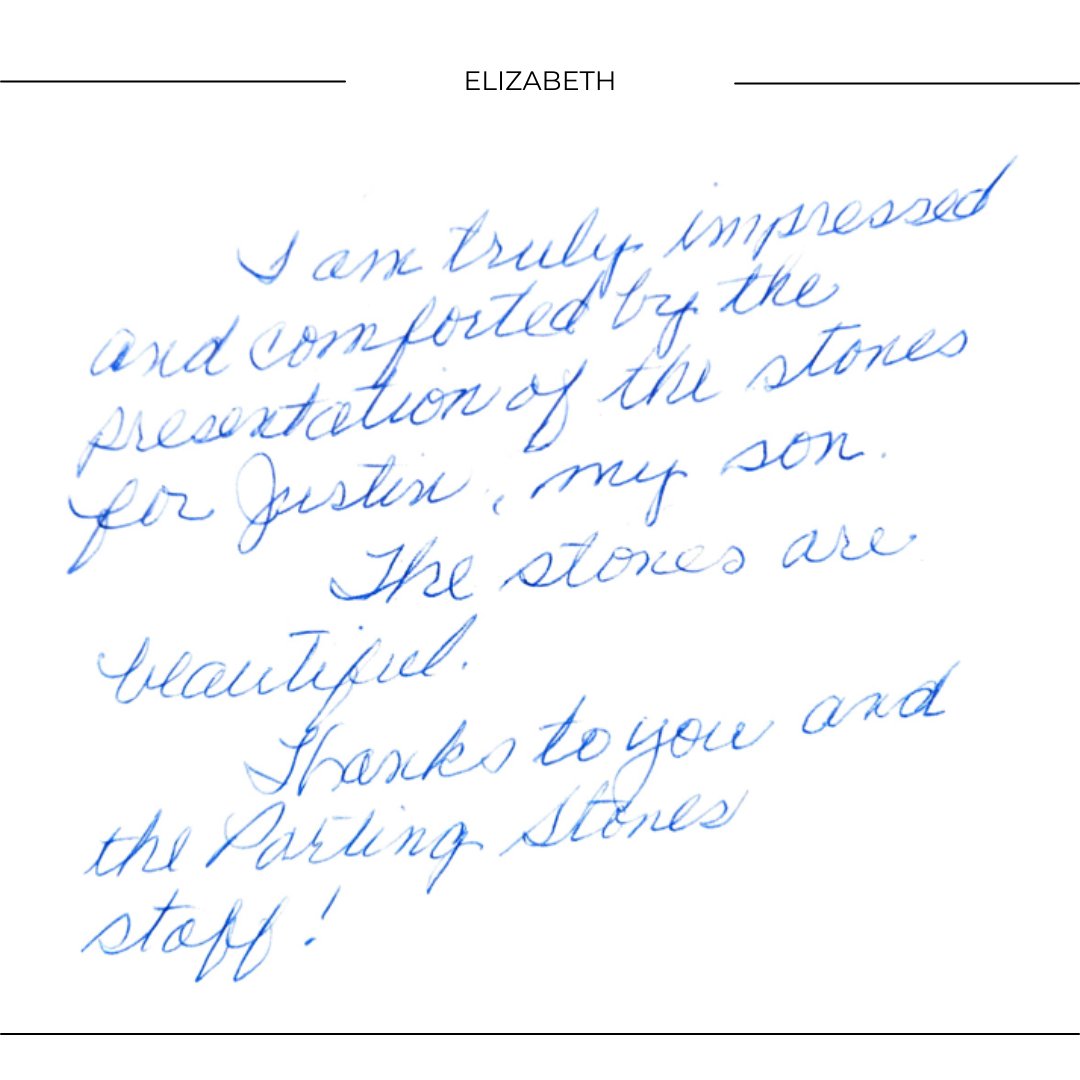 ELIZABETH
I am truly impressed
and comforted by the
presentation of the stones
for Justin, my son.
The stones are
beautiful.
Thanks to you and
the Parting Stones
staff!